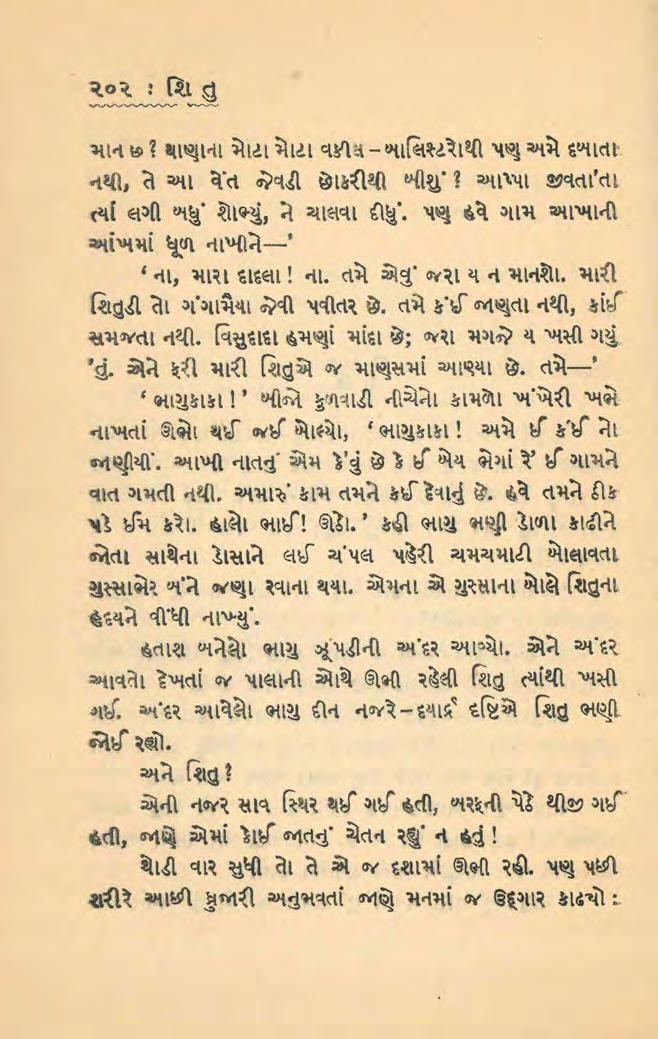 ૨૦૨ : શિ તુ
માન છ ? થાણાના મોટા મોટા વકીલ – બાલિસ્ટરોથી પણ અમે દબાતા
નથી, તે આ વેંત જેવડી છોકરીથી બીશું ? આપ્પા જીવતા'તા
ત્યાં લગી બધું શોભ્યું, ને ચાલવા દીધું. પણ હવે ગામ આખાની
આંખમાં ધૂળ નાખીને—’
‘ ના, મારા દાદલા ! ના. તમે એવું જરા ય ન માનશો. મારી
શિતુડી તો ગંગામૈયા જેવી પવીતર છે. તમે કંઈ જાણતા નથી, કાંઈ
સમજતા નથી. વિસુદાદા હમણાં માંદા છે; જરા મગજે ય ખસી ગયું
'તું. એને ફરી મારી શિતુએ જ માણસમાં આણ્યા છે. તમે—’
‘ ભાગુકાકા ! ’ બીજો કુળવાડી નીચેનો કામળો ખંખેરી ખભે
નાખતાં ઊભો થઈ જઈ બોલ્યો, ‘ ભાગુકાકા ! અમે ઈ કંઈ નો
જાણીયીં. આખી નાતનું એમ કે'વું છે કે ઈ બેય ભેગાં રે' ઈ ગામને
વાત ગમતી નથી. અમારું કામ તમને કઈ દેવાનું છે. હવે તમને ઠીક
પડે ઈમ કરો. હાલો ભાઈ ! ઊઠો. ’ કહી ભાગુ ભણી ડોળા કાઢીને
જોતા સાથેના ડોસાને લઈ ચંપલ પહેરી ચમચમાટી બોલાવતા
ગુસ્સાભેર બંને જણા રવાના થયા. એમના એ ગુસ્સાના બોલે શિતુના
હૃદયને વીંધી નાખ્યું.
હતાશ બનેલો ભાગુ ઝૂંપડીની અંદર આવ્યો. એને અંદર
આવતો દેખતાં જ પાલાની ઓથે ઊભી રહેલી શિતુ ત્યાંથી ખસી
ગઈ. અંદર આવેલો ભાગુ દીન નજરે – દયાર્દ્ર દૃષ્ટિએ શિતુ ભણી
જોઈ રહ્યો.
અને શિતુ ?
એની નજર સાવ સ્થિર થઈ ગઈ હતી, બરફની પેઠે થીજી ગઈ
હતી, જાણે એમાં કોઈ જાતનું ચેતન રહ્યું ન હતું !
થોડી વાર સુધી તો તે એ જ દશામાં ઊભી રહી. પણ પછી
શરીરે આછી ધ્રુજારી અનુભવતાં જાણે મનમાં જ ઉદ્ગાર કાઢયો :